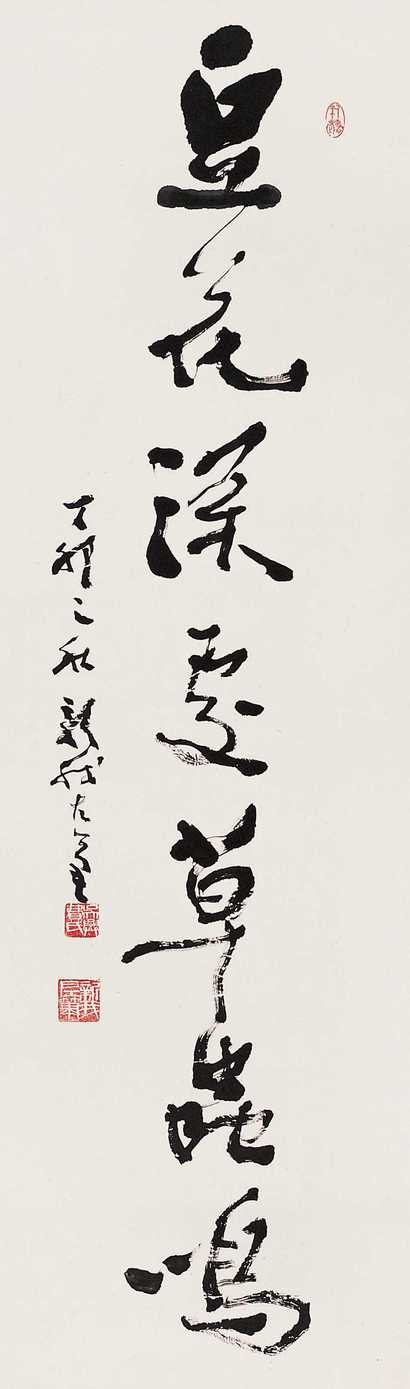 豆花深處草蟲鳴
丁卯之秋 新我左筆